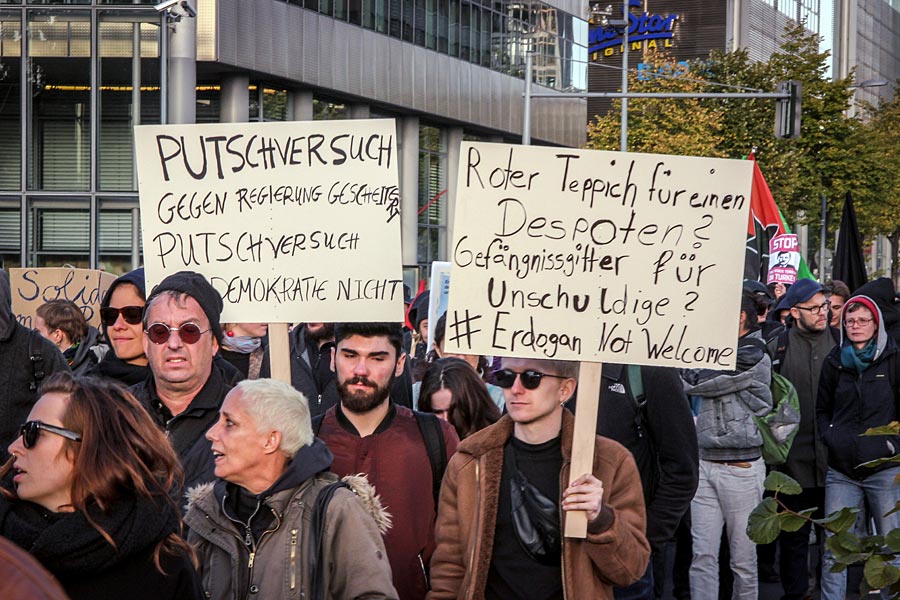 PUTSCHVERSUCH
GEGEN REGIERUNG GESCHEITERT
PUTSCHVERSUCH
DEMOKRATIE NICHT
Roter Teppich für einen
Despoten?
Gefängnissgitter für
Unschuldige?
#Erdogan Not Welcome
Solid
STOP
IGINAL